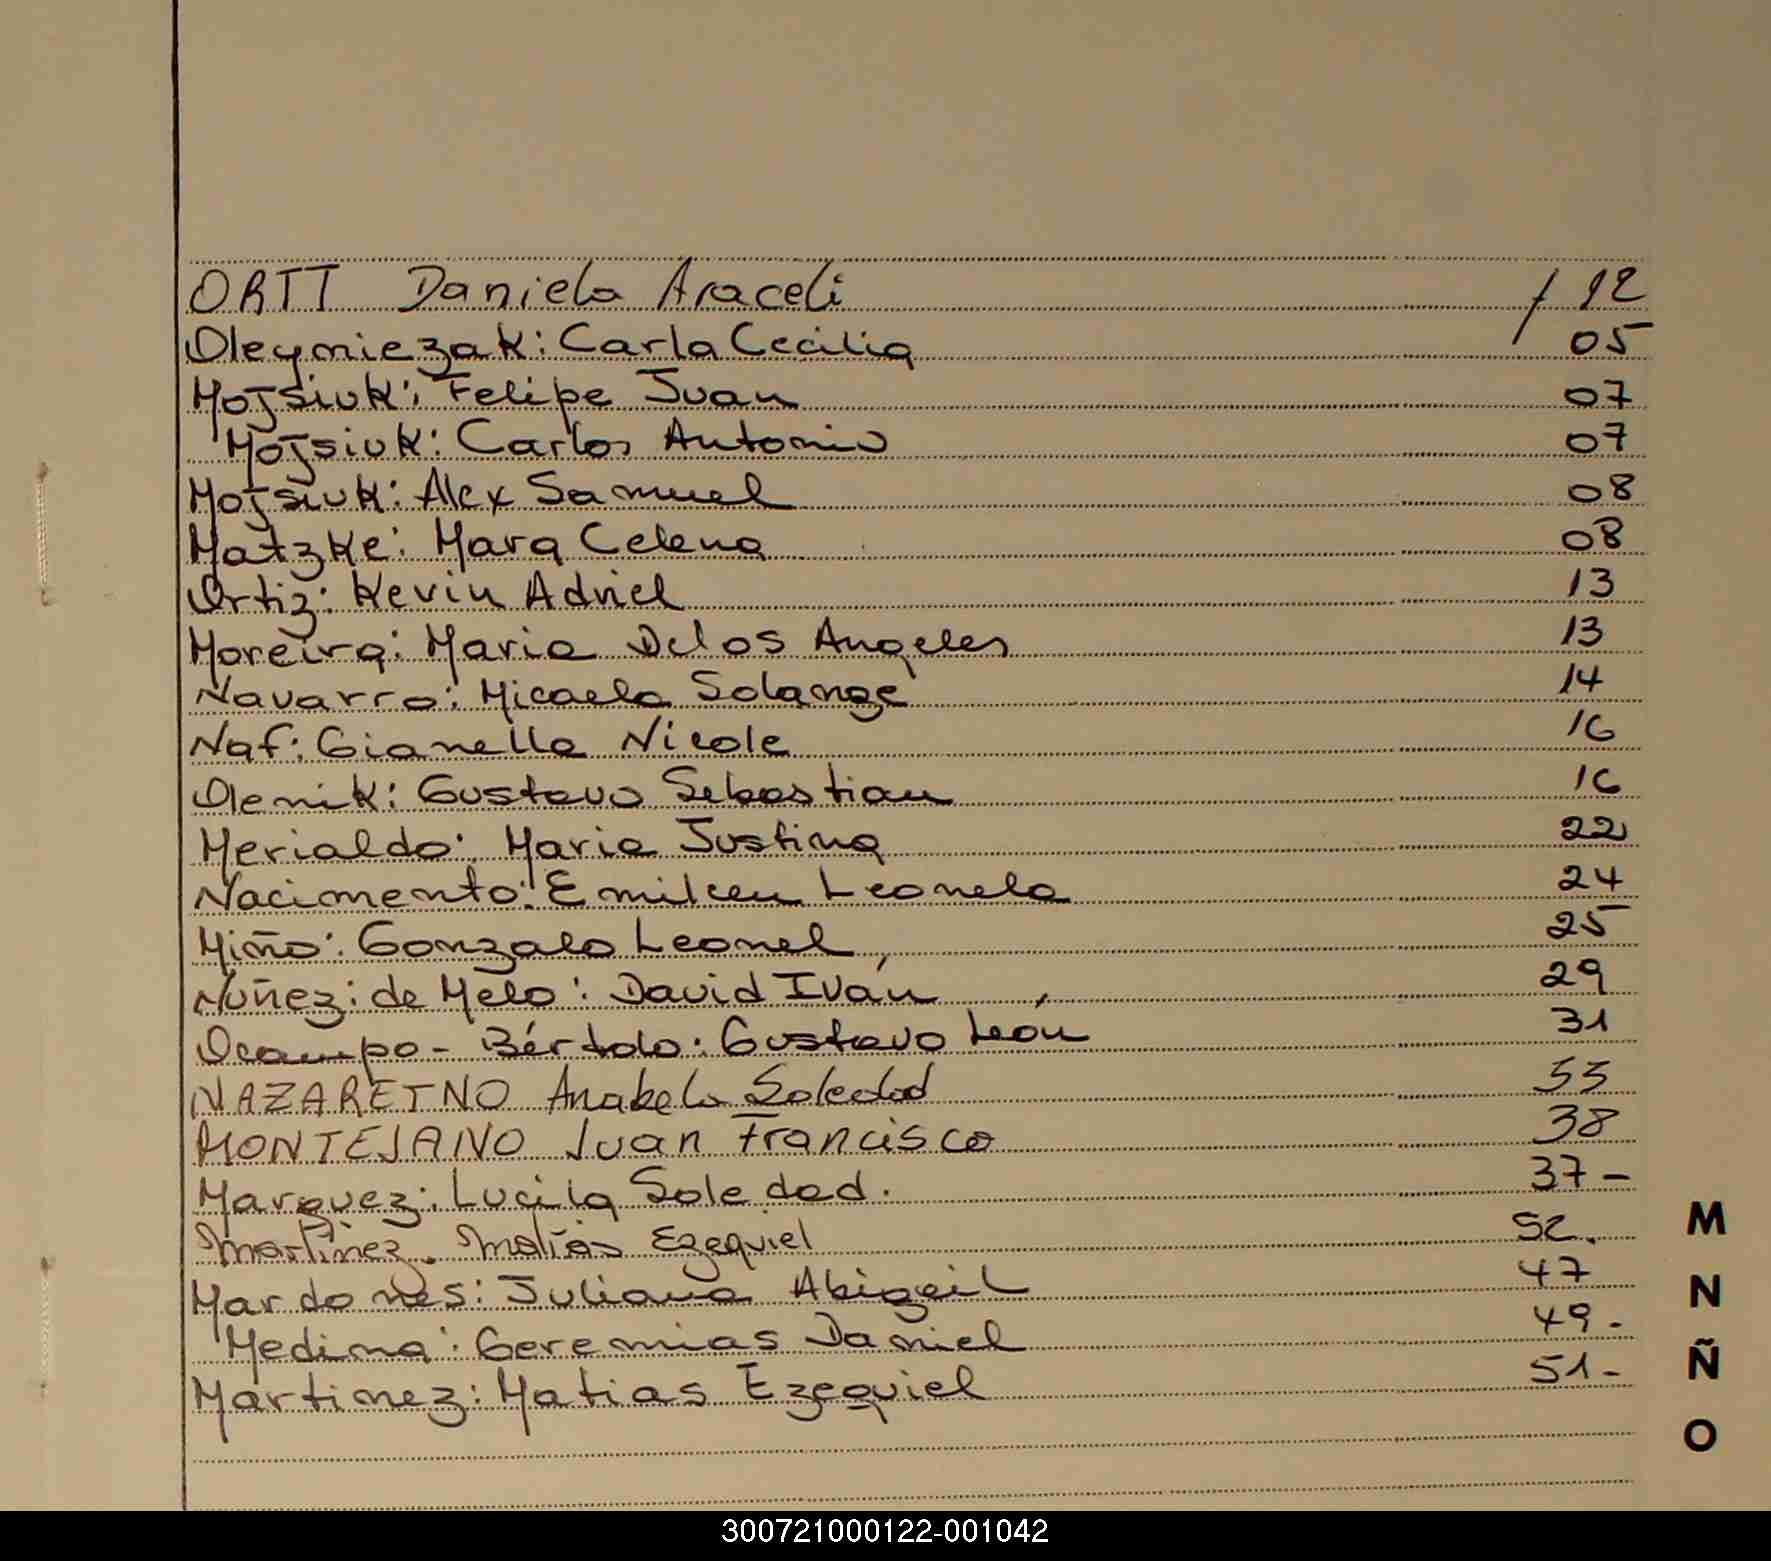 ORTT Daniela Araceli / 12
Oleyniezak: Carla Cecilia 05
Mojsiuk: Felipe Juan 07
Mojsiuk: Carlos Antonio 07
Mojsiuk: Alex Samuel 08
Matzke: Mara Celena 08
Ortiz: Kevin Adriel 13
Moreira: Maria Delos Angeles 13
Navarro: Micaela Solange 14
Naf: Gianella Nicole 16
Olenik: Gustavo Sebastian 16
Merialdo: Maria Justina 22
Nacimento: Emilcen Leonela 24
Miño: Gonzalo Leonel 25
Nuñez: de Melo: David Iván 29
Ocampo - Bértolo: Gustavo León 31
NAZARETNO Anabela Soledad
MONTEJANO Juan Francisco 38
Marquez: Lucila Soledad. 37 -
Martínez. Matías Ezequiel 52.
Mardones: Juliana Abigail 47
Medina: Geremias Daniel 49 -
Martinez: Matias Ezequiel 51 -
M
N
Ñ
O
300721000122-001042